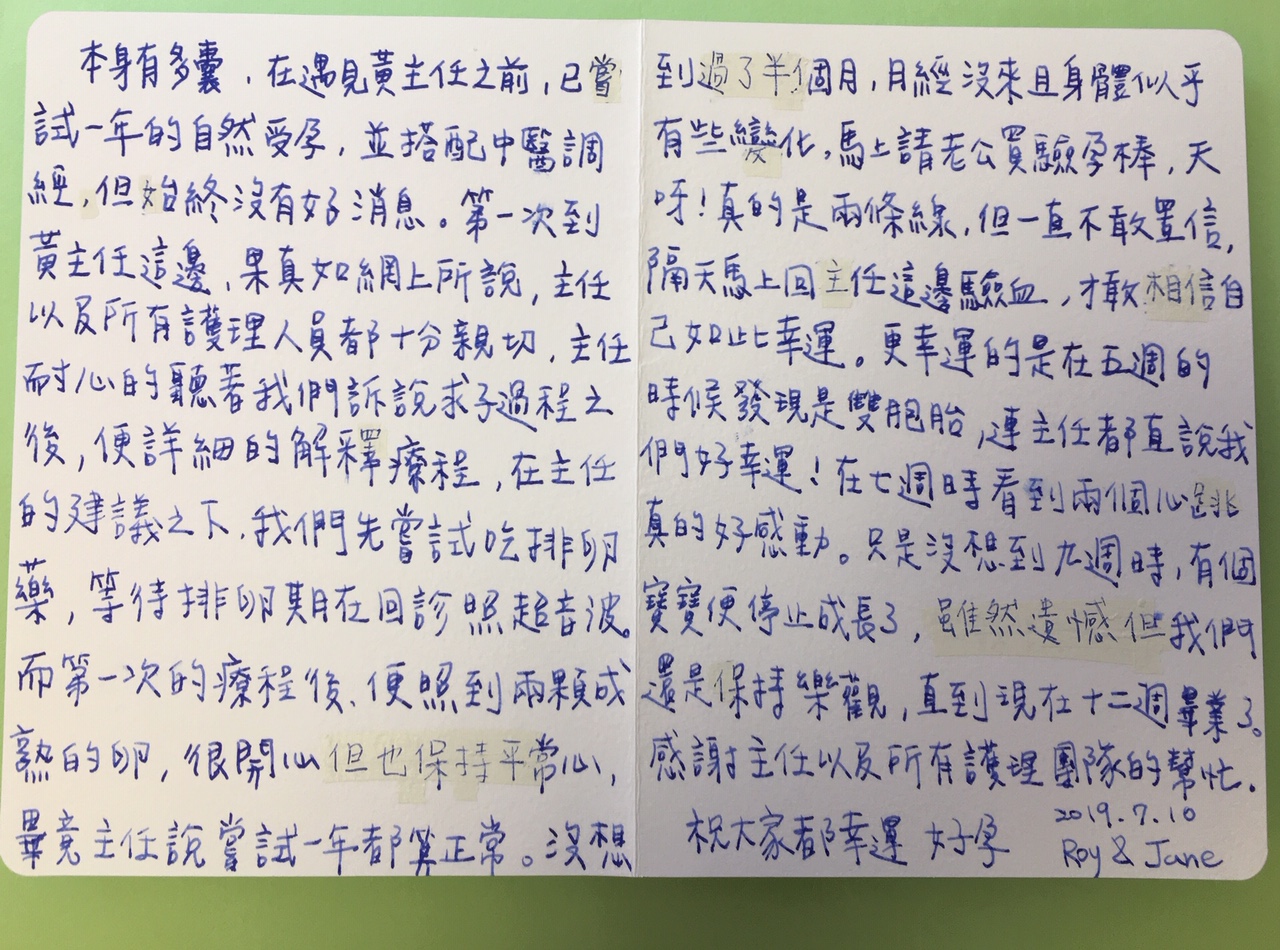 本身有多囊，在遇見黃主任之前，已嘗
試一年的自然受孕，並搭配中醫調
經，但始終沒有好消息。第一次到
黃主任這邊，果真如網上所說，主任
以及所有護理人員都十分親切，主任
耐心的聽著我們訴說求子過程之
後，便詳細的解釋療程，在主任
的建議之下，我們先嘗試吃排卵
藥，等待排卵期在回診照超音波。
而第一次的療程後，便照到兩顆成
熟的卵，很開心但也保持平常心，
畢竟主任說嘗試一年都算正常。沒想
到過了半個月，月經沒來且身體似乎
有些變化，馬上請老公買驗孕棒，天
呀！真的是兩條線，但一直不敢置信，
隔天馬上回主任這邊驗血，才敢相信自
己如此幸運。更幸運的是在五週的
時候發現是雙胞胎，連主任都直說我
們好幸運！在七週時看到兩個心跳
真的好感動。只是沒想到九週時，有個
寶寶便停止成長了，雖然遺憾但我們
還是保持樂觀，直到現在十二週畢業了。
感謝主任以及所有護理團隊的幫忙。
祝大家都幸運 好孕
2019.7.10
Roy & Jane